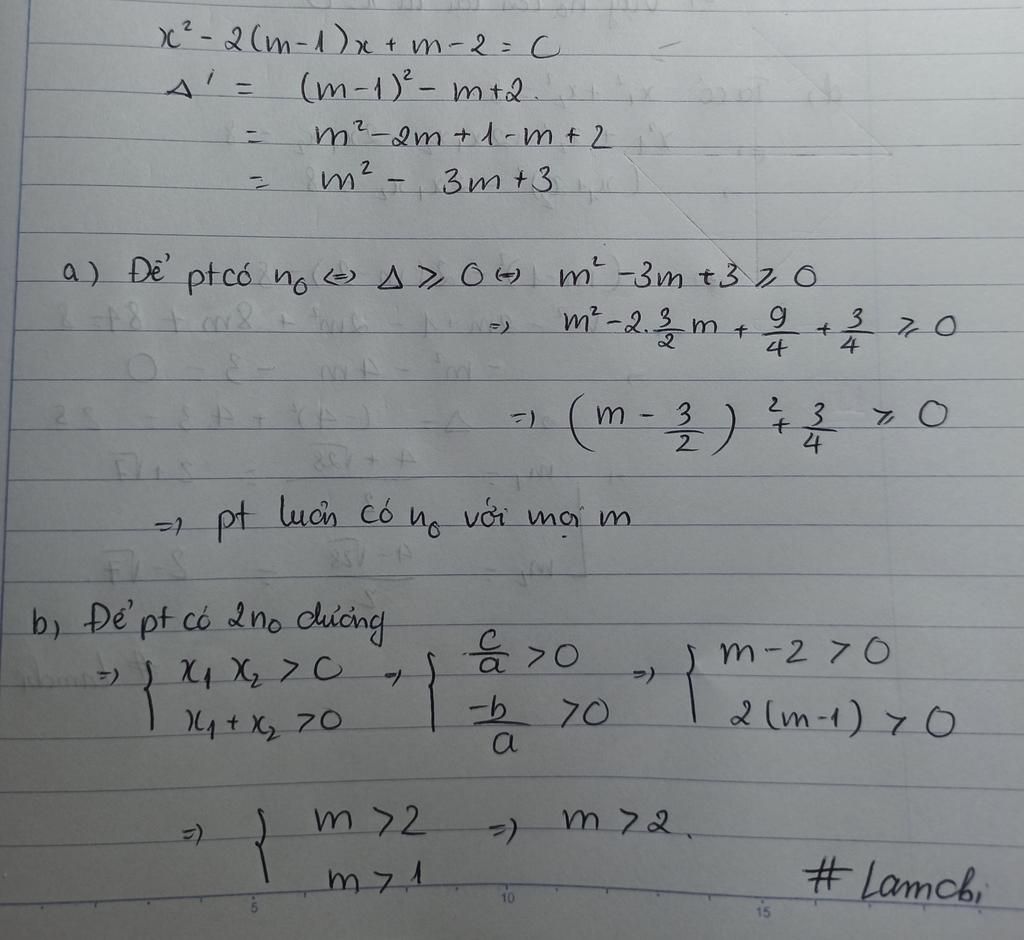 x² - 2(m-1)x + m - 2 = 0
Δ' = (m-1)² - m+2.
= m² - 2m + 1 - m + 2
= m² - 3m + 3
a) Để pt có n₀ <=> Δ ≥ 0 <=> m² - 3m + 3 ≥ 0
=> m² - 2.3/2 m + 9/4 + 3/4 ≥ 0
=> (m - 3/2)² + 3/4 ≥ 0
=> pt luôn có n₀ với mọi m
b, Để pt có 2n₀ dương
=> { x₁ x₂ > 0 ; x₁ + x₂ > 0 => { c/a > 0 ; -b/a > 0 => { m - 2 > 0 ; 2(m-1) > 0
=> { m > 2 ; m > 1 => m > 2.
# Lamchi
5 10 15